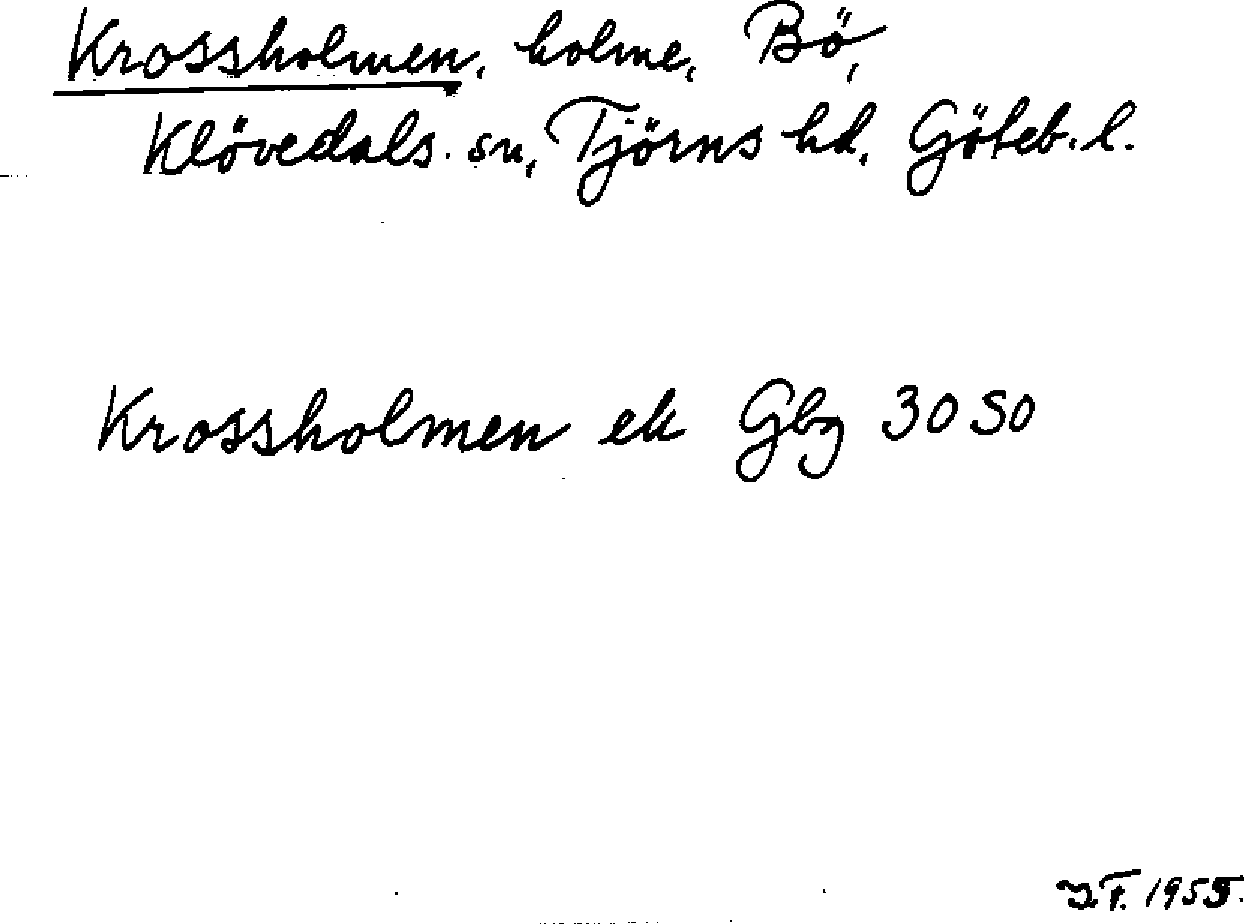 Krossholmen, holme, Bö,
Klövedals. sn, Tjörns hd, Göteb. l.
Krossholmen ek Gbg 30 SO
1955.